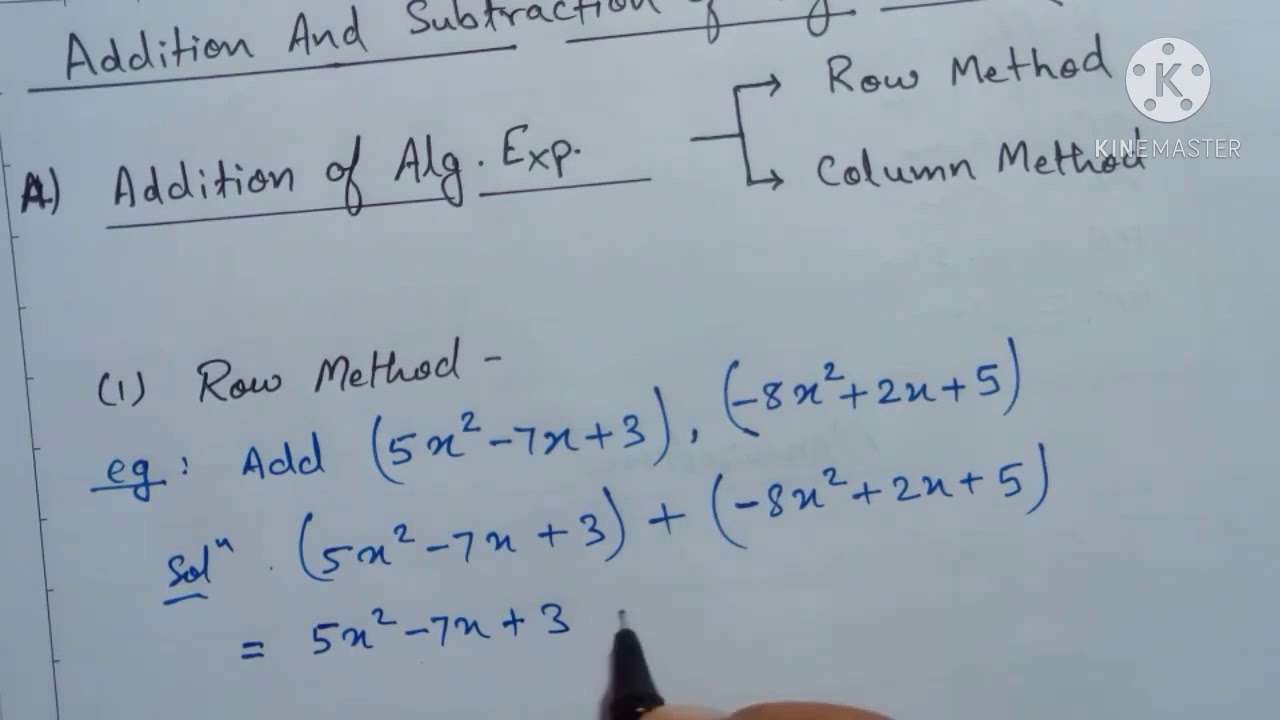 Addition And Subtraction of
A) Addition of Alg. Exp.
Row Method
Column Method
K
KINEMASTER
(1) Row Method -
eg: Add (5x² - 7x + 3), (-8x² + 2x + 5)
Solⁿ. (5x² - 7x + 3) + (-8x² + 2x + 5)
= 5x² - 7x + 3